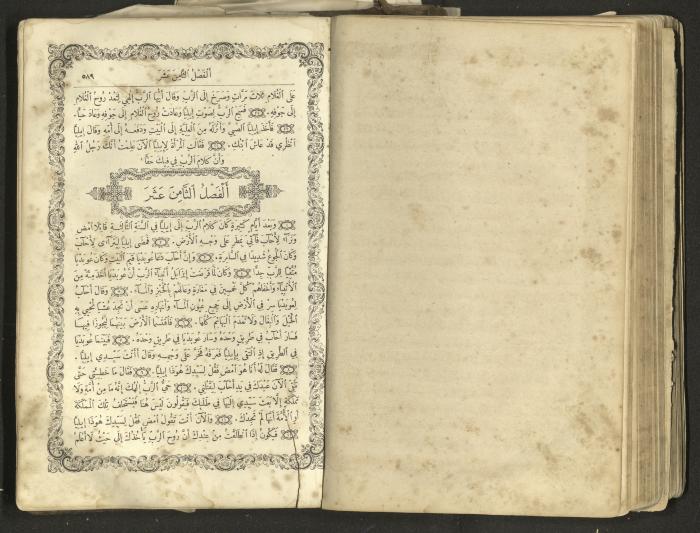 اَلْفَصْلُ الثَّامِنَ عَشَرَ ٥٨٩
عَلَى ٱلْغُلَامِ ثَلَاثَ مَرَّاتٍ وَصَرَخَ إِلَى ٱلرَّبِّ وَقَالَ أَيُّهَا ٱلرَّبُّ إِلٰهِي لِتَعُدْ رُوحُ ٱلْغُلَامِ
إِلَى جَوْفِهِ. فَسَمِعَ ٱلرَّبُّ لِصَوْتِ إِيلِيَّا وَعَادَتْ رُوحُ ٱلْغُلَامِ إِلَى جَوْفِهِ وَعَادَ حَيًّا.
فَأَخَذَ إِيلِيَّا ٱلصَّبِيَّ وَأَنْزَلَهُ مِنَ ٱلْعُلِّيَّةِ إِلَى ٱلْبَيْتِ وَدَفَعَهُ إِلَى أُمِّهِ وَقَالَ إِيلِيَّا
ٱنْظُرِي قَدْ عَاشَ ٱبْنُكِ. فَقَالَتِ ٱلْمَرْأَةُ لِإِيلِيَّا ٱلْآنَ عَلِمْتُ أَنَّكَ رَجُلُ ٱللهِ
وَأَنَّ كَلَامَ ٱلرَّبِّ فِي فِيكَ حَقًّا
اَلْفَصْلُ ٱلثَّامِنَ عَشَرَ
وَبَعْدَ أَيَّامٍ كَثِيرَةٍ كَانَ كَلَامُ ٱلرَّبِّ إِلَى إِيلِيَّا فِي ٱلسَّنَةِ ٱلثَّالِثَةِ قَائِلًا ٱمْضِ
وَتَرَاءَ لِأَحْآبَ فَآتِيَ بِمَطَرٍ عَلَى وَجْهِ ٱلْأَرْضِ. فَمَضَى إِيلِيَّا لِيَتَرَاءَى لِأَحْآبَ
وَكَانَ ٱلْجُوعُ شَدِيدًا فِي ٱلسَّامِرَةِ. وَإِنَّ أَحْآبَ دَعَا عُوبَدْيَا قَيِّمَ ٱلْبَيْتِ وَكَانَ عُوبَدْيَا
مُتَّقِيًا لِلرَّبِّ جِدًّا وَكَانَ لَمَّا قَرَضَتْ إِيزَابَلُ أَنْبِيَاءَ ٱلرَّبِّ أَنَّ عُوبَدْيَا أَخَذَ مِئَةً مِنَ
ٱلْأَنْبِيَاءِ وَأَخْفَاهُمْ كُلَّ خَمْسِينَ فِي مَغَارَةٍ وَعَالَهُمْ بِٱلْخُبْزِ وَٱلْمَاءِ. وَقَالَ أَحْآبُ
لِعُوبَدْيَا سِرْ فِي ٱلْأَرْضِ إِلَى جَمِيعِ عُيُونِ ٱلْمَاءِ وَٱلْأَنْهَارِ عَسَى أَنْ نَجِدَ عُشْبًا نُحْيِي بِهِ
ٱلْخَيْلَ وَٱلْبِغَالَ وَلَا نَعْدَمَ ٱلْبَهَائِمَ كُلَّهَا. فَٱقْتَسَمَا ٱلْأَرْضَ بَيْنَهُمَا لِيَجُوزَا فِيهَا
فَسَارَ أَحْآبُ فِي طَرِيقٍ وَحْدَهُ وَسَارَ عُوبَدْيَا فِي طَرِيقٍ وَحْدَهُ. فَبَيْنَمَا عُوبَدْيَا
فِي ٱلطَّرِيقِ إِذِ ٱلْتَقَى بِإِيلِيَّا فَعَرَفَهُ فَخَرَّ عَلَى وَجْهِهِ وَقَالَ أَأَنْتَ سَيِّدِي إِيلِيَّا.
فَقَالَ لَهُ أَنَا هُوَ ٱمْضِ فَقُلْ لِسَيِّدِكَ هُوَذَا إِيلِيَّا. فَقَالَ مَا خَطِيئَتِي حَتَّى
تُسَلِّمَ ٱلْآنَ عَبْدَكَ فِي يَدِ أَحْآبَ لِيَقْتُلَنِي. حَيٌّ ٱلرَّبُّ إِلٰهُكَ إِنَّهُ مَا مِنْ أُمَّةٍ وَلَا
مَمْلَكَةٍ إِلَّا بَعَثَ سَيِّدِي إِلَيْهَا فِي طَلَبِكَ فَيَقُولُونَ لَيْسَ هُنَا فَيَسْتَحْلِفُ تِلْكَ ٱلْمَمْلَكَةَ
أَوِ ٱلْأُمَّةَ أَنَّهَا لَمْ تَجِدْكَ. وَٱلْآنَ أَنْتَ تَقُولُ ٱمْضِ فَقُلْ لِسَيِّدِكَ هُوَذَا إِيلِيَّا
فَيَكُونُ إِذَا ٱنْطَلَقْتُ مِنْ عِنْدِكَ أَنَّ رُوحَ ٱلرَّبِّ يَأْخُذُكَ إِلَى حَيْثُ لَا أَعْلَمُ